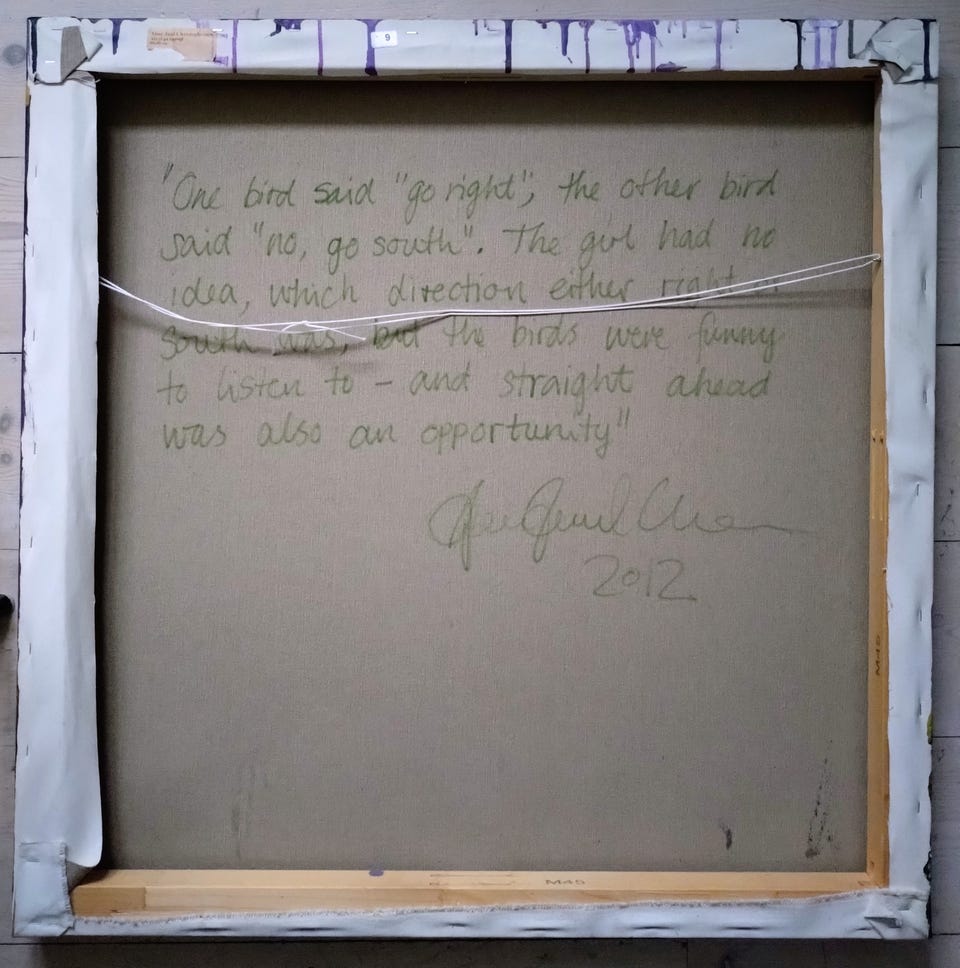 9
"One bird said "go right"; the other bird
said "no, go south". The girl had no
idea, which direction either right or
south was, but the birds were funny
to listen to – and straight ahead
was also an opportunity"
2012
M45
M45